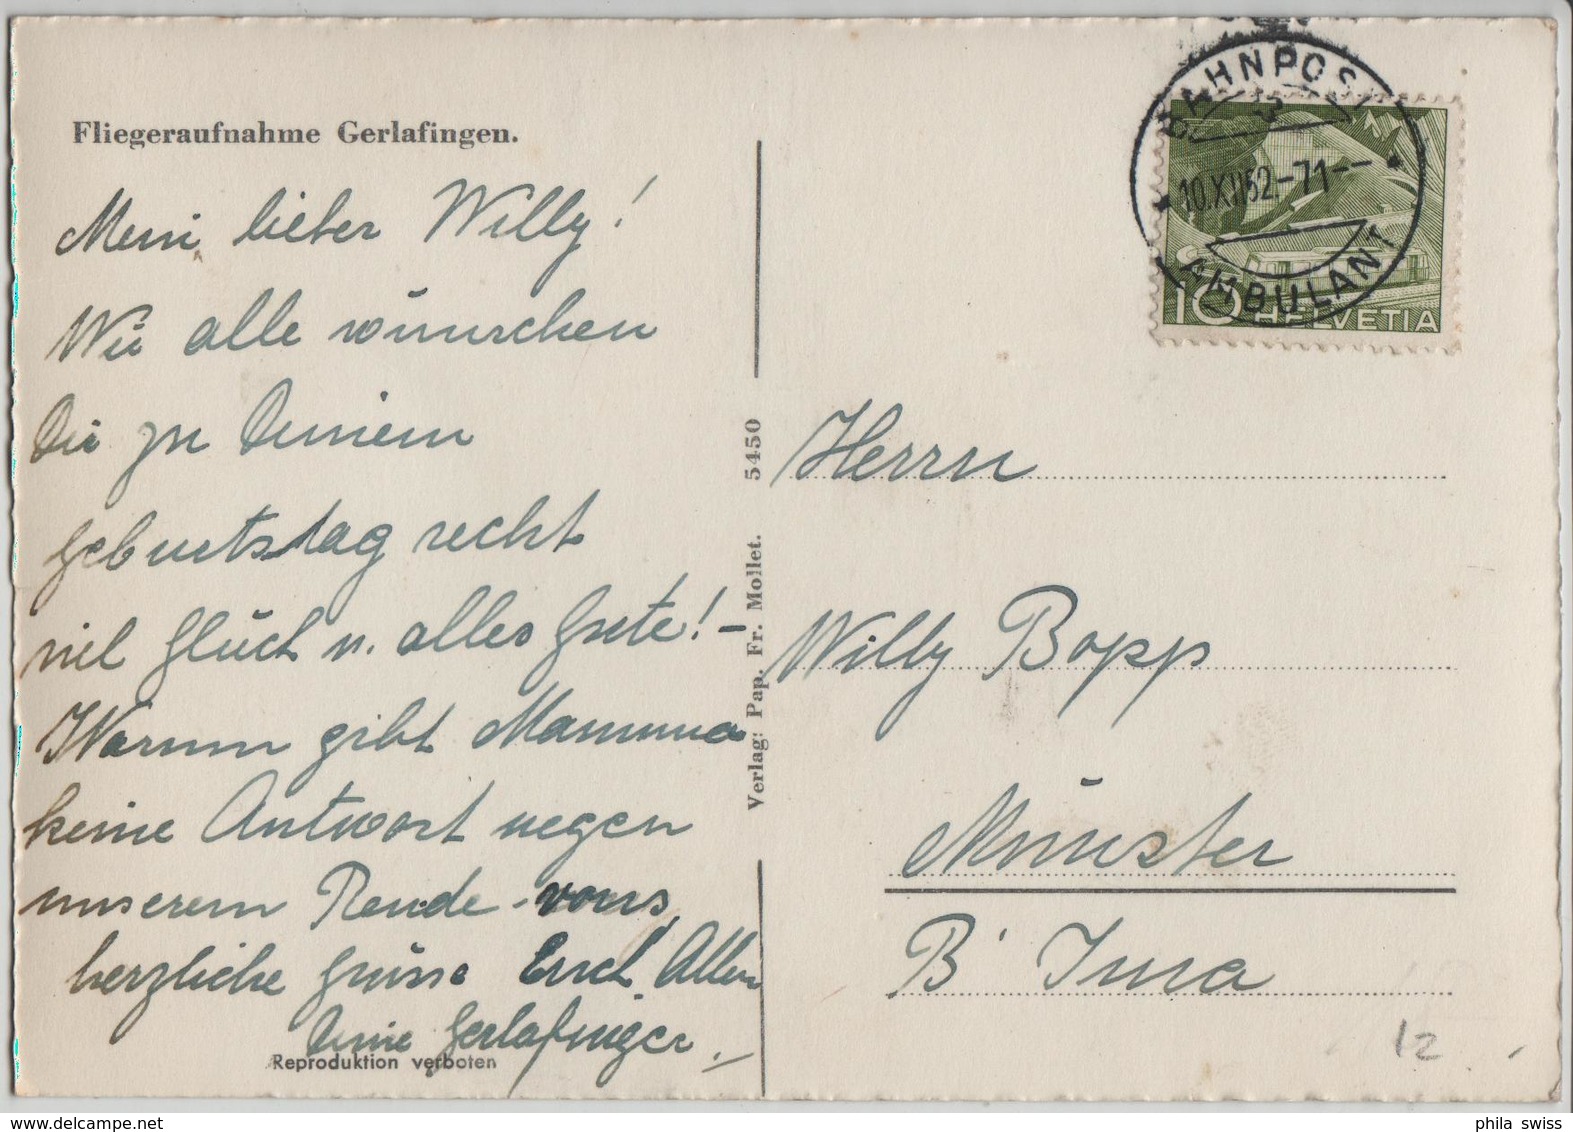 Fliegeraufnahme Gerlafingen.
Mein lieber Willy!
Wir alle wünschen
Dir zu Deinem
Geburtstag recht
viel Glück u. alles Gute! –
Warum gibt Mamma
keine Antwort wegen
unserem Rende-vous,
herzliche Grüsse Euch Allen
Deine Gerlafinger.
Reproduktion verboten
Verlag: Pap. Fr. Mollet. 5450
BAHNPOST
10.XII52.-71-
AMBULANT
10 HELVETIA
Herrn
Willy Bopp
Münster
B' Jura
12
phila swiss